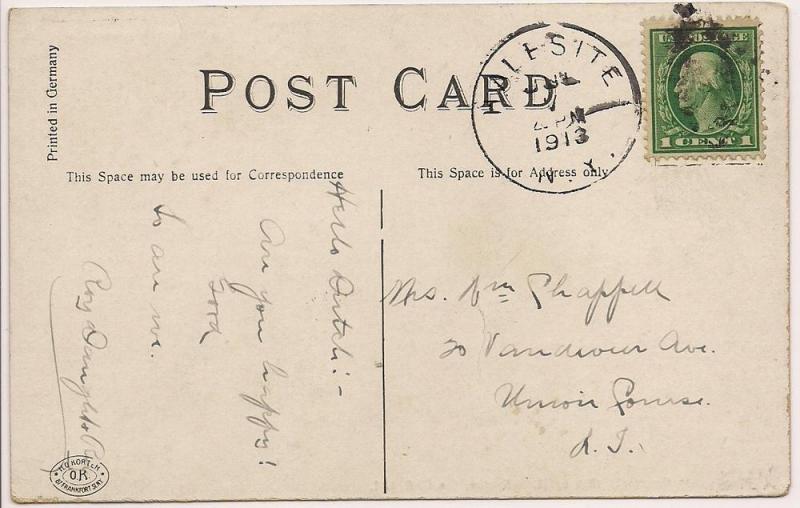 Printed in Germany
POST CARD
HALESITE
JUL
1
2 PM
1913
N.Y.
U.S. POSTAGE
1 CENT 1
This Space may be used for Correspondence
This Space is for Address only
Hello Dutch:-
Are you happy?
Good
So am we.
Roy Daught
Mrs. Wm Chappell
20 Vandeveer Ave.
Union Course.
L.I.
O.K.